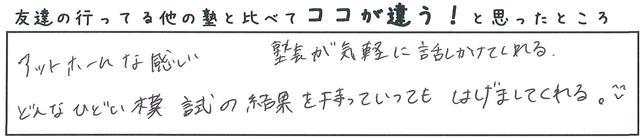 友達の行ってる他の塾と比べてココが違う！と思ったところ
アットホームな感じ 塾長が気軽に話しかけてくれる.
どんなひどい模試の結果を持っていっても はげましてくれる。